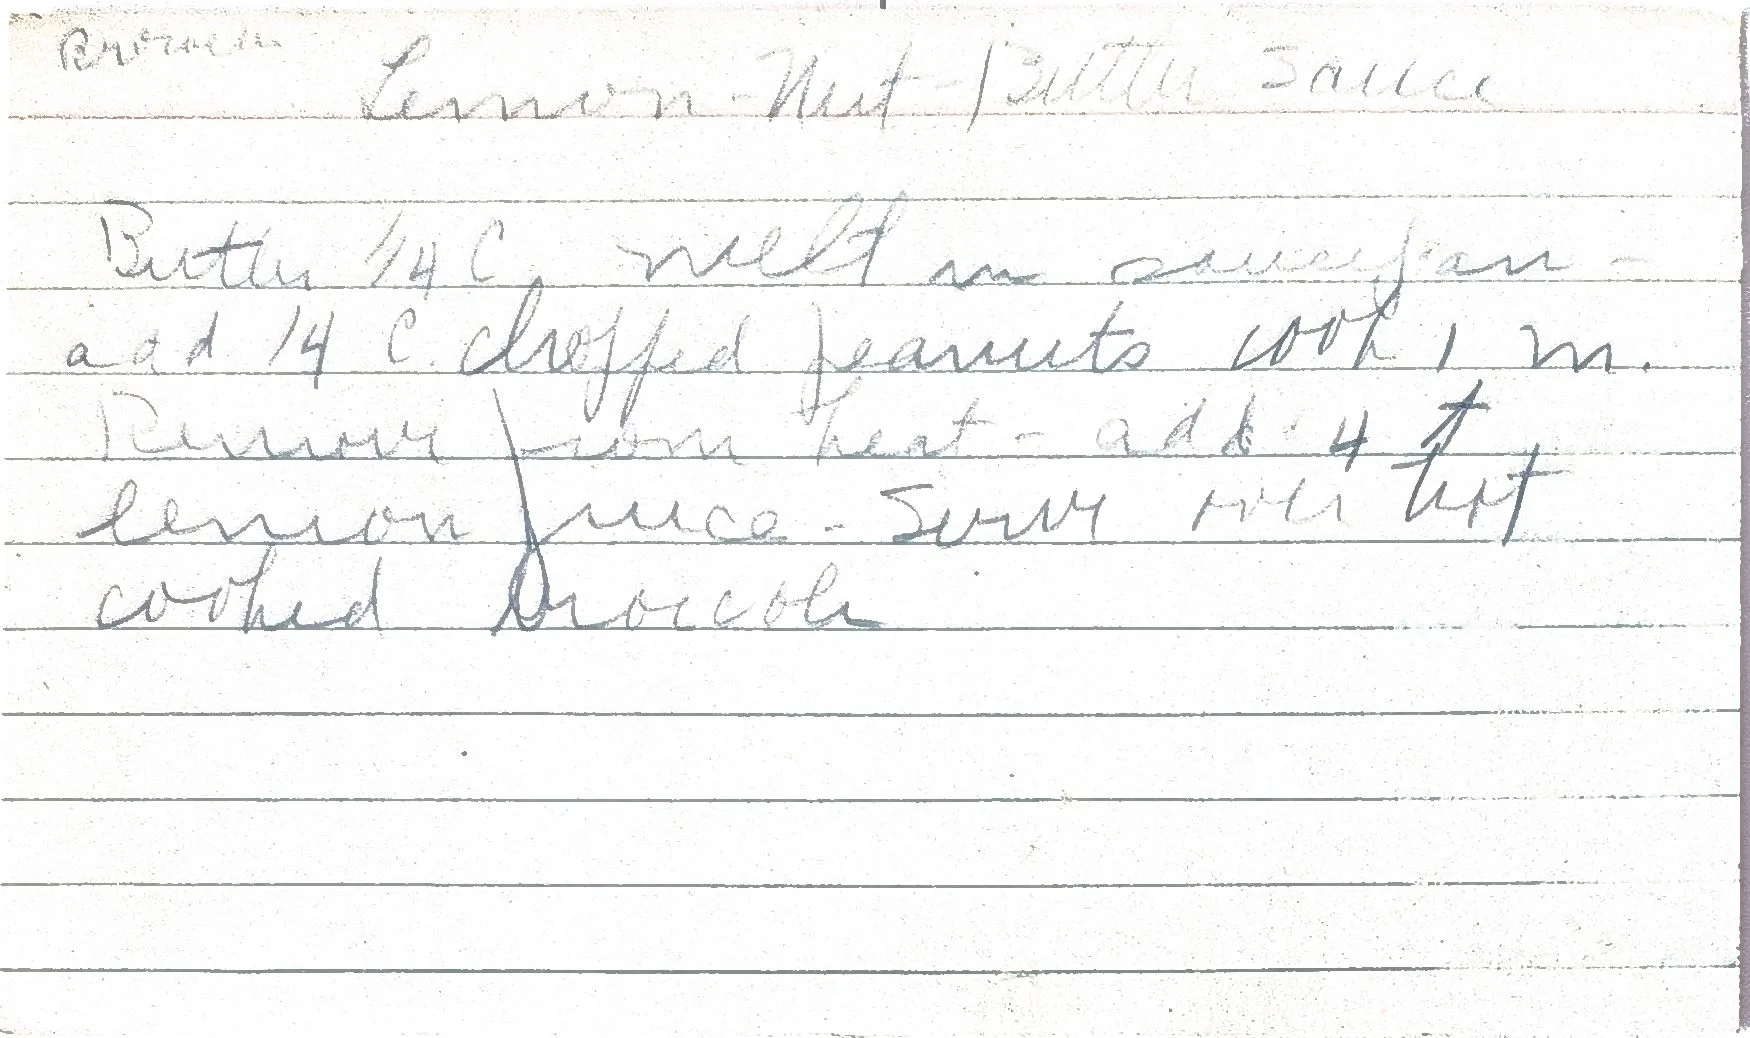 Lemon-Nut-Butter Sauce
Butter 1/4 C. melt in saucepan -
add 1/4 C. chopped peanuts cook 1 m.
Remove from heat - add 4 t
lemon juice - Serve over hot
cooked broccoli